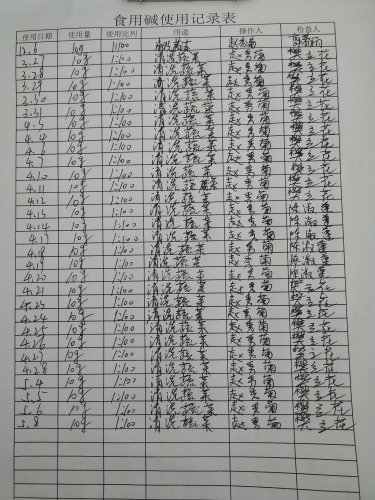 食用碱使用记录表
使用日期 使用量 使用比列 用途 操作人 检查人
12.6 10g 1:100 赵秀菊
3.27 10g 1:100 清洗蔬菜 赵秀菊 樊立花
3.28 10g 1:100 清洗蔬菜 赵秀菊 樊立花
3.29 10g 1:100 清洗蔬菜 赵秀菊 樊立花
3.30 10g 1:100 清洗蔬菜 赵秀菊 樊立花
3.31 10g 1:100 清洗蔬菜 赵秀菊 樊立花
4.3 10g 1:100 清洗蔬菜 赵秀菊 樊立花
4.4 10g 1:100 清洗蔬菜 赵秀菊 樊立花
4.6 10g 1:100 清洗蔬菜 赵秀菊 樊立花
4.7 10g 1:100 清洗蔬菜 赵秀菊 樊立花
4.10 10g 1:100 清洗蔬菜 赵秀菊 樊立花
4.11 10g 1:100 清洗蔬菜 赵秀菊 樊立花
4.12 10g 1:100 清洗蔬菜 赵秀菊 樊立花
4.13 10g 1:100 清洗蔬菜 赵秀菊
4.14 10g 1:100 清洗蔬菜 赵秀菊
4.17 10g 1:100 清洗蔬菜 赵秀菊
4.18 10g 1:100 清洗蔬菜 赵秀菊
4.19 10g 1:100 清洗蔬菜 赵秀菊
4.20 10g 1:100 清洗蔬菜 赵秀菊
4.21 10g 1:100 清洗蔬菜 赵秀菊 樊立花
4.23 10g 1:100 清洗蔬菜 赵秀菊 樊立花
4.24 10g 1:100 清洗蔬菜 赵秀菊 樊立花
4.25 10g 1:100 清洗蔬菜 赵秀菊 樊立花
4.26 10g 1:100 清洗蔬菜 赵秀菊 樊立花
4.27 10g 1:100 清洗蔬菜 赵秀菊 樊立花
4.28 10g 1:100 清洗蔬菜 赵秀菊 樊立花
5.4 10g 1:100 清洗蔬菜 赵秀菊 樊立花
5.5 10g 1:100 清洗蔬菜 赵秀菊 樊立花
5.6 10g 1:100 清洗蔬菜 赵秀菊 樊立花
5.8 10g 1:100 清洗蔬菜 赵秀菊 樊立花